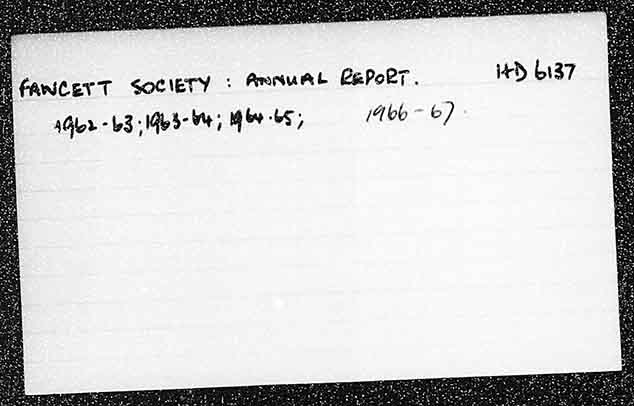 FAWCETT SOCIETY : ANNUAL REPORT. HD 6137
1962-63; 1963-64; 1964-65; 1966-67.